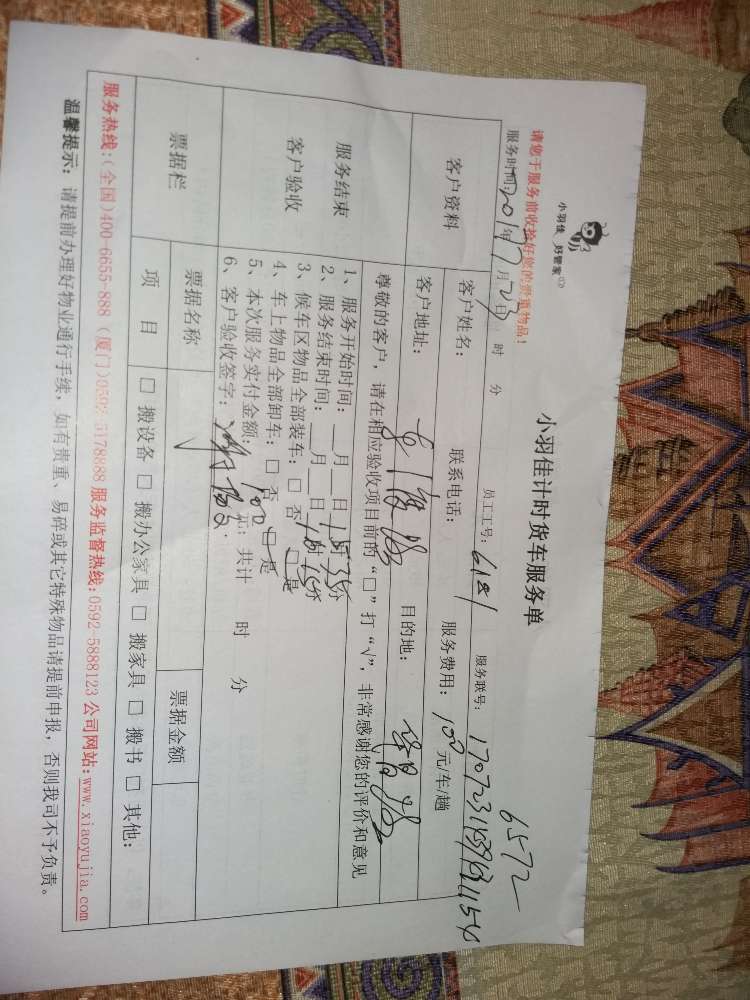 小羽佳 好管家
小羽佳计时货车服务单
6572
请您于服务前收捡好您的贵重物品！
服务时间：2017年7月23日 时 分 员工工号：6181 服务联号：
客户资料
客户姓名： 联系电话： 服务费用：100元/车/趟
客户地址： 目的地：
服务结束
客户验收
尊敬的客户，请在相应验收项目前的“□”打“√”，非常感谢您的评价和意见
1、服务开始时间：__月__日
2、服务结束时间：__月__日
3、候车区物品全部装车：□否 □是
4、车上物品全部卸车：□否 □是
5、本次服务实付金额：100元；共计 时 分
6、客户验收签字：
票据栏
票据名称 票据金额
项 目 □ 搬设备 □ 搬办公家具 □ 搬家具 □ 搬书 □ 其他：
服务热线：(全国)400-6655-888 (厦门)0592-5178888 服务监督热线：0592-5888123 公司网站：www.xiaoyujia.com
温馨提示：请提前办理好物业通行手续，如有贵重、易碎或其它特殊物品请提前申报，否则我司不予负责。